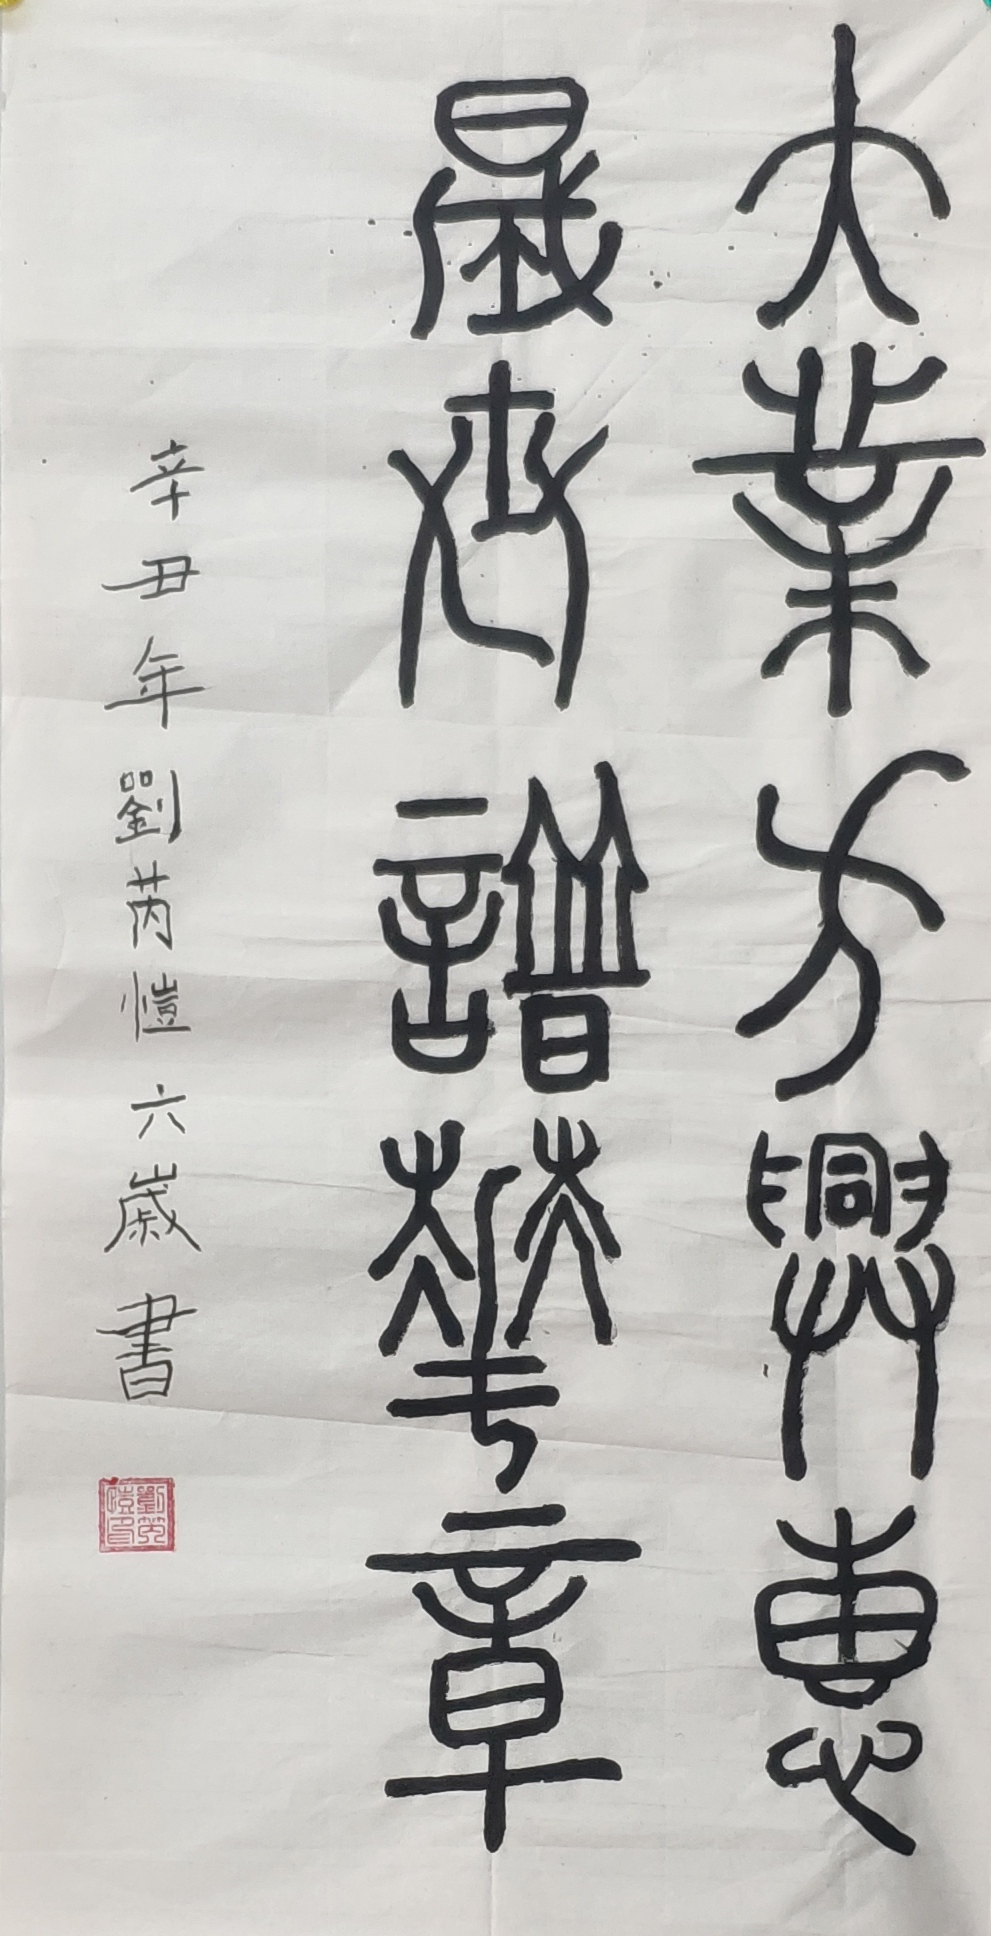 大業方興惠
晟譜華章
辛丑年劉芮愷六歲書
劉芮愷印